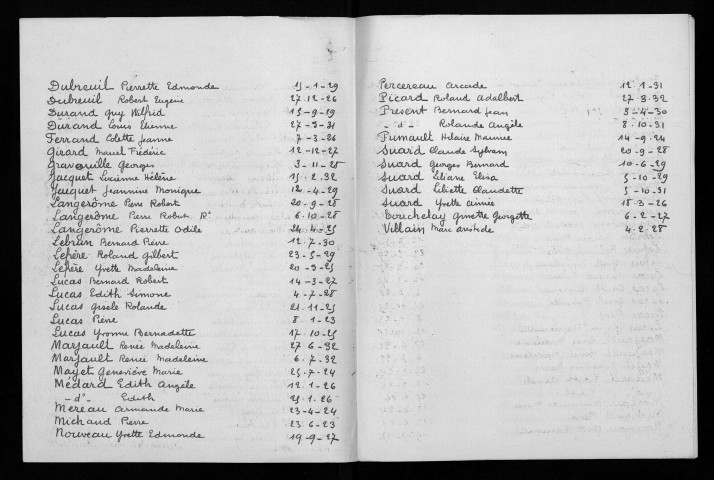 Dubreuil Pierrette Edmonde 15-1-29
Dubreuil Robert Eugène 27.12-26
Durand Guy Wilfrid 15-9-19
Durand Louis Etienne 27-5-31
Ferrand Colette Jeanne 7-3-26
Girard Marcel Frédéric 12-12-27
Gravouille Georges 3-11-28
Jacquet Lucienne Hélène 15.2.32
Jacquet Jeannine Monique 12-4-29
Langerôme Pierre Robert 20-9-28
Langerôme Pierre Robert R° 6.10-28
Langerôme Pierrette Odile 24.4-25
Lebrun Bernard Pierre 12.7.30
Lefère Roland Gilbert 23-5-29
Lefère Yvette Madeleine 20-9-25
Lucas Bernard Robert 14-3-27
Lucas Edith Simone 4-7-28
Lucas Gisèle Rolande 21.11-25
Lucas Pierre 8 1-23
Lucas Yvonne Bernadette 17.10-25
Marsault Renée Madeleine 27.6-32
Marsault Renée Madeleine 6.7.32
Mayet Geneviève Marie 25.7-24
Médard Edith Angèle 12.1-26
-d°- Edith 25 1.26
Mereau Armande Marie 23-4-24
Michaud Pierre 23 6-23
Nouveau Yvette Edmonde 19-9-27
Percereau Arcade 12 1-31
Picard Roland Adalbert 27-3.32
Présent Bernard Jean 3-4-30
-d°- Rolande Angèle 8.10.31
Pumault Hilaire Maurice 14-9.24
Suard Claude Sylvain 20-9-28
Suard Georges Bernard 10-6-29
Suard Liliane Elisa 5-10-29
Suard Liliette Claudette 5-10.31
Suard Yvette Aimée 18.3-26
Touchelay Ginette Georgette 6-2-27
Villain Marc Aristide 4.2.28